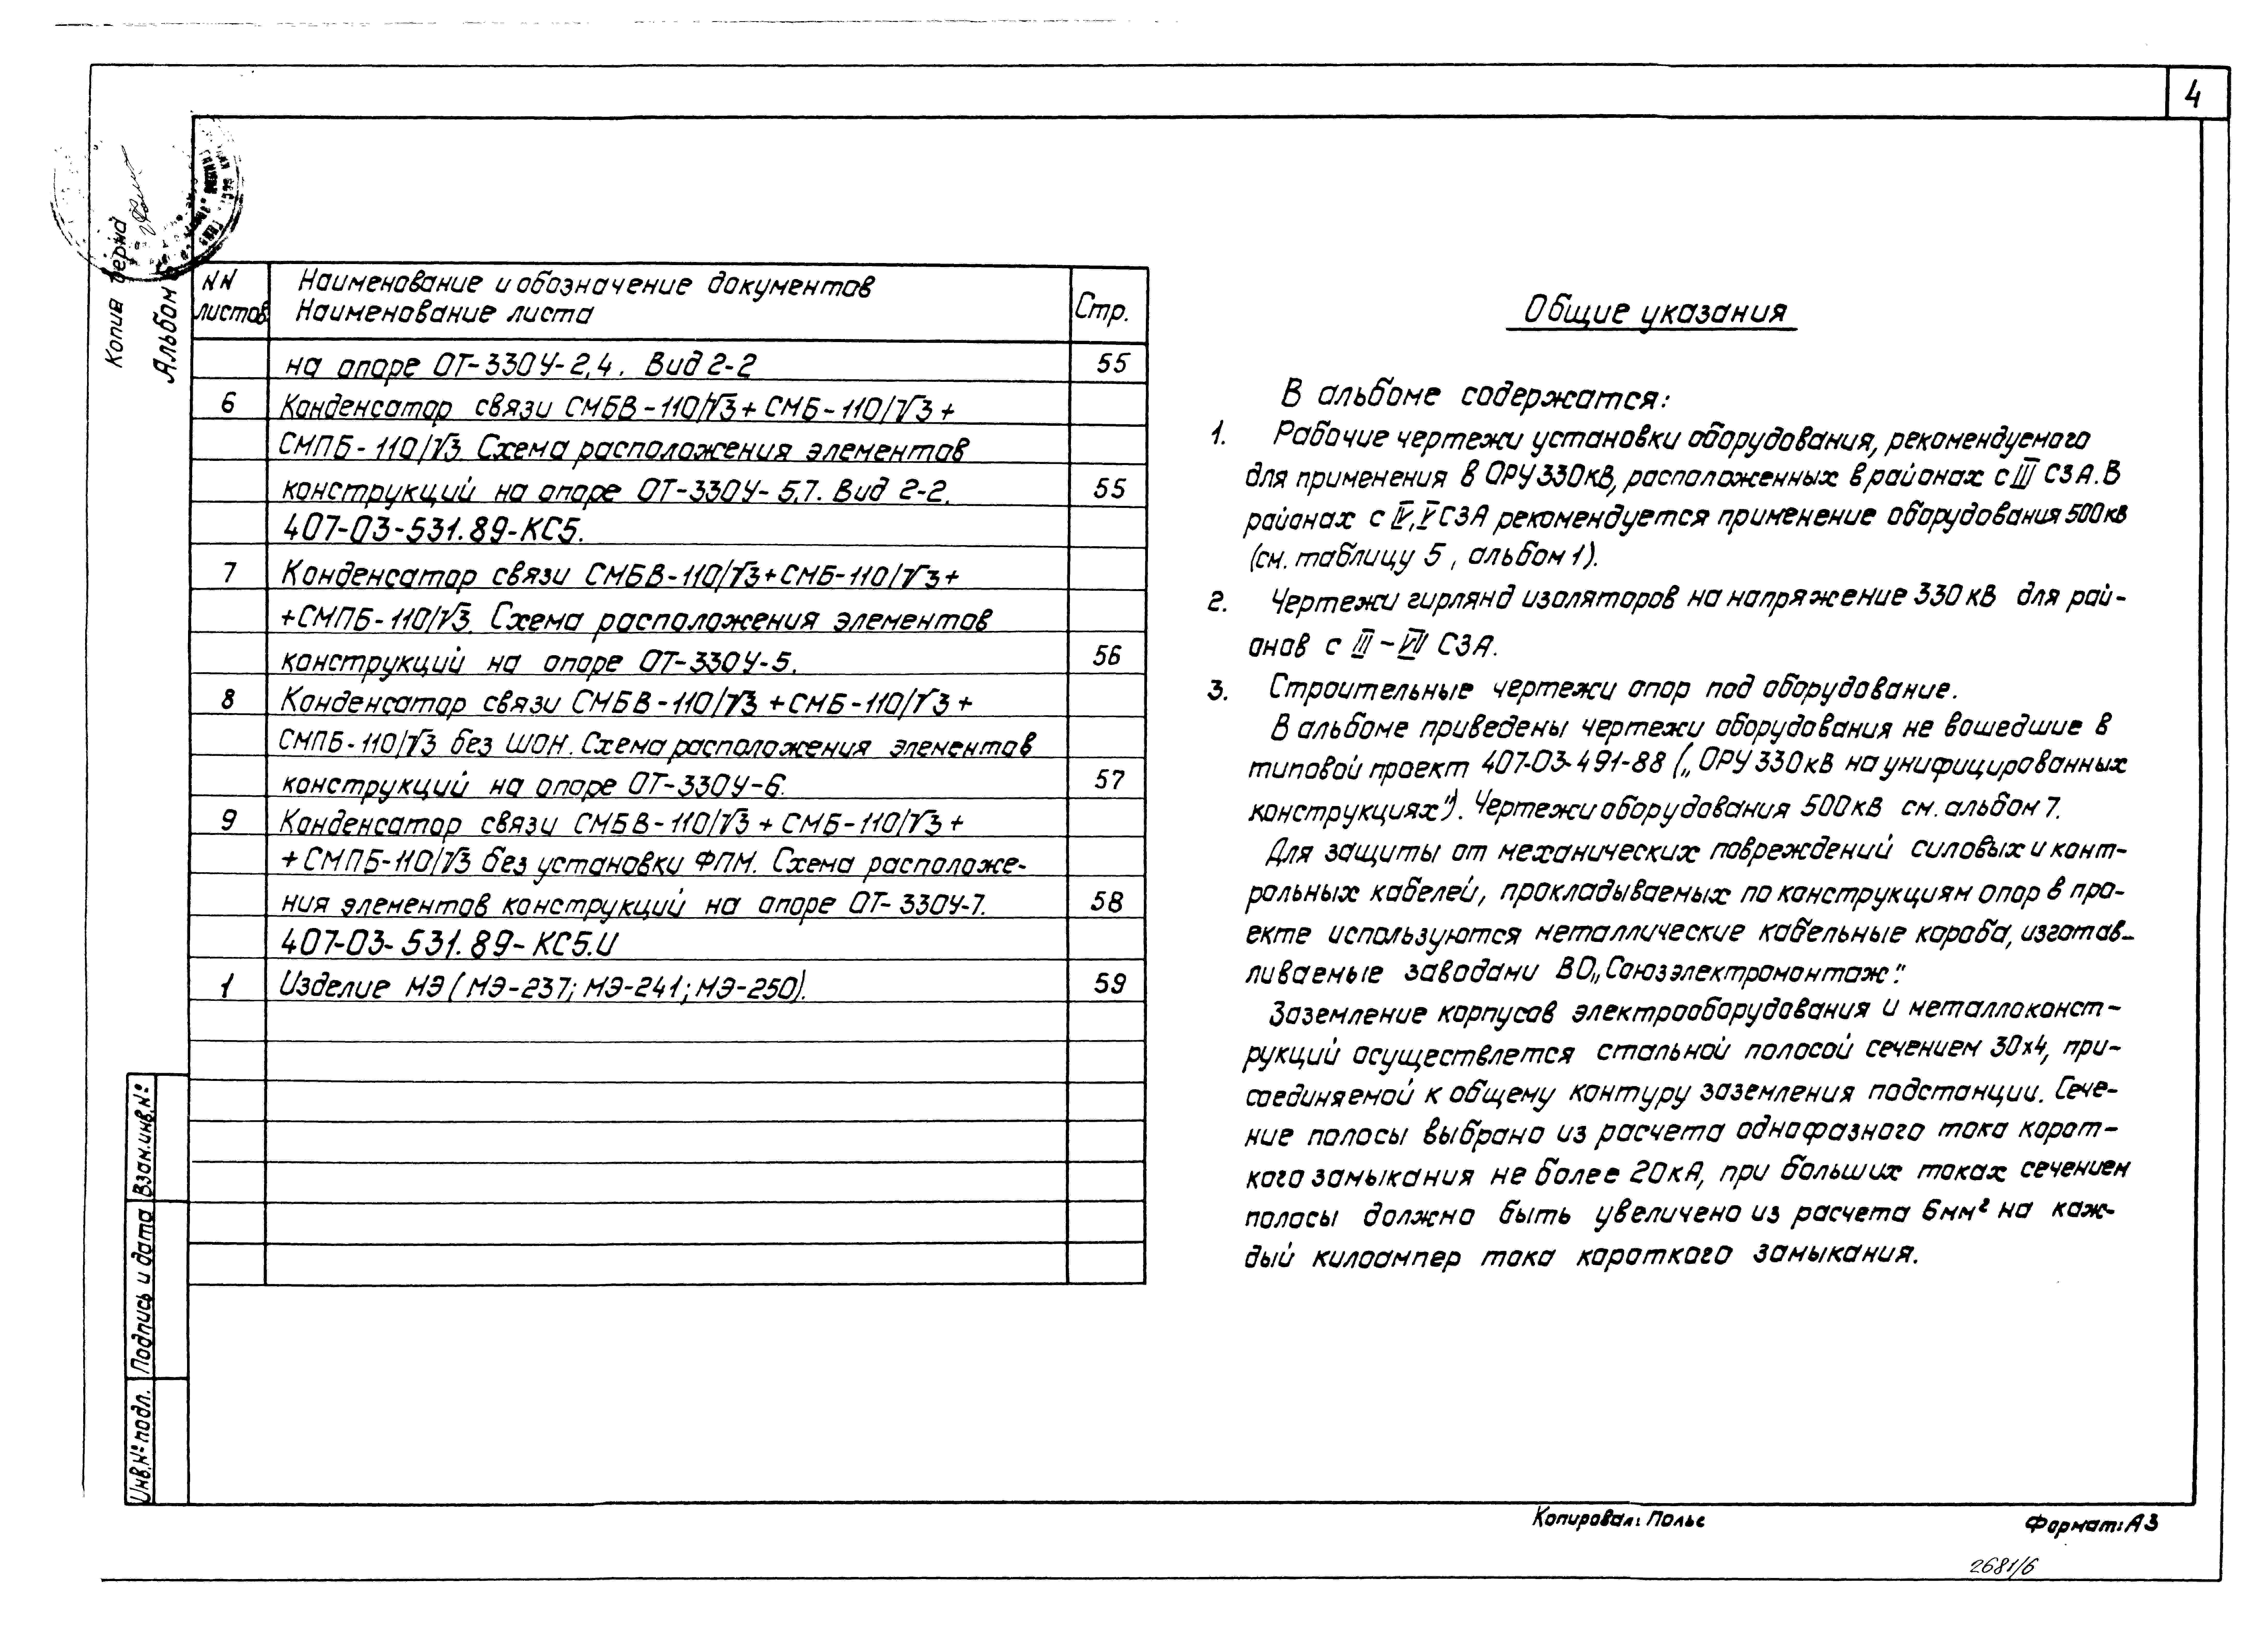 4
Копия верна
Альбом
NN Наименование и обозначение документов
листов Наименование листа Стр.
на опоре ОТ-330У-2,4. Вид 2-2 55
6 Конденсатор связи СМБВ-110/√3+СМБ-110/√3+
СМПБ-110/√3. Схема расположения элементов
конструкций на опоре ОТ-330У-5,7. Вид 2-2. 55
407-03-531.89-КС5.
7 Конденсатор связи СМБВ-110/√3+СМБ-110/√3+
+СМПБ-110/√3. Схема расположения элементов
конструкций на опоре ОТ-330У-5. 56
8 Конденсатор связи СМБВ-110/√3+СМБ-110/√3+
СМПБ-110/√3 без ШОН. Схема расположения элементов
конструкций на опоре ОТ-330У-6. 57
9 Конденсатор связи СМБВ-110/√3+СМБ-110/√3+
+СМПБ-110/√3 без установки ФПМ. Схема расположе-
ния элементов конструкций на опоре ОТ-330У-7. 58
407-03-531.89-КС5.И
1 Изделие МЭ (МЭ-237; МЭ-241; МЭ-250). 59
Общие указания
В альбоме содержатся:
1. Рабочие чертежи установки оборудования, рекомендуемого
для применения в ОРУ 330кВ, расположенных в районах с III СЗА. В
районах с IV, V СЗА рекомендуется применение оборудования 500кв
(см. таблицу 5, альбом 1).
2. Чертежи гирлянд изоляторов на напряжение 330 кВ для рай-
онов с III – VII СЗА.
3. Строительные чертежи опор под оборудование.
В альбоме приведены чертежи оборудования не вошедшие в
типовой проект 407-03-491-88 („ОРУ 330кВ на унифицированных
конструкциях"). Чертежи оборудования 500кВ см. альбом 7.
Для защиты от механических повреждений силовых и конт-
рольных кабелей, прокладываемых по конструкциям опор в про-
екте используются металлические кабельные короба, изготав-
ливаемые заводами ВО„Союзэлектромонтаж".
Заземление корпусов электрооборудования и металлоконст-
рукций осуществлется стальной полосой сечением 30х4, при-
соединяемой к общему контуру заземления подстанции. Сече-
ние полосы выбрано из расчета однофазного тока корот-
кого замыкания не более 20кА, при больших токах сечением
полосы должно быть увеличено из расчета 6мм² на каж-
дый килоампер тока короткого замыкания.
Взам.инв.№
Подпись и дата
Инв.№ подл.
Копировал: Полье
Формат: А3
2681/6